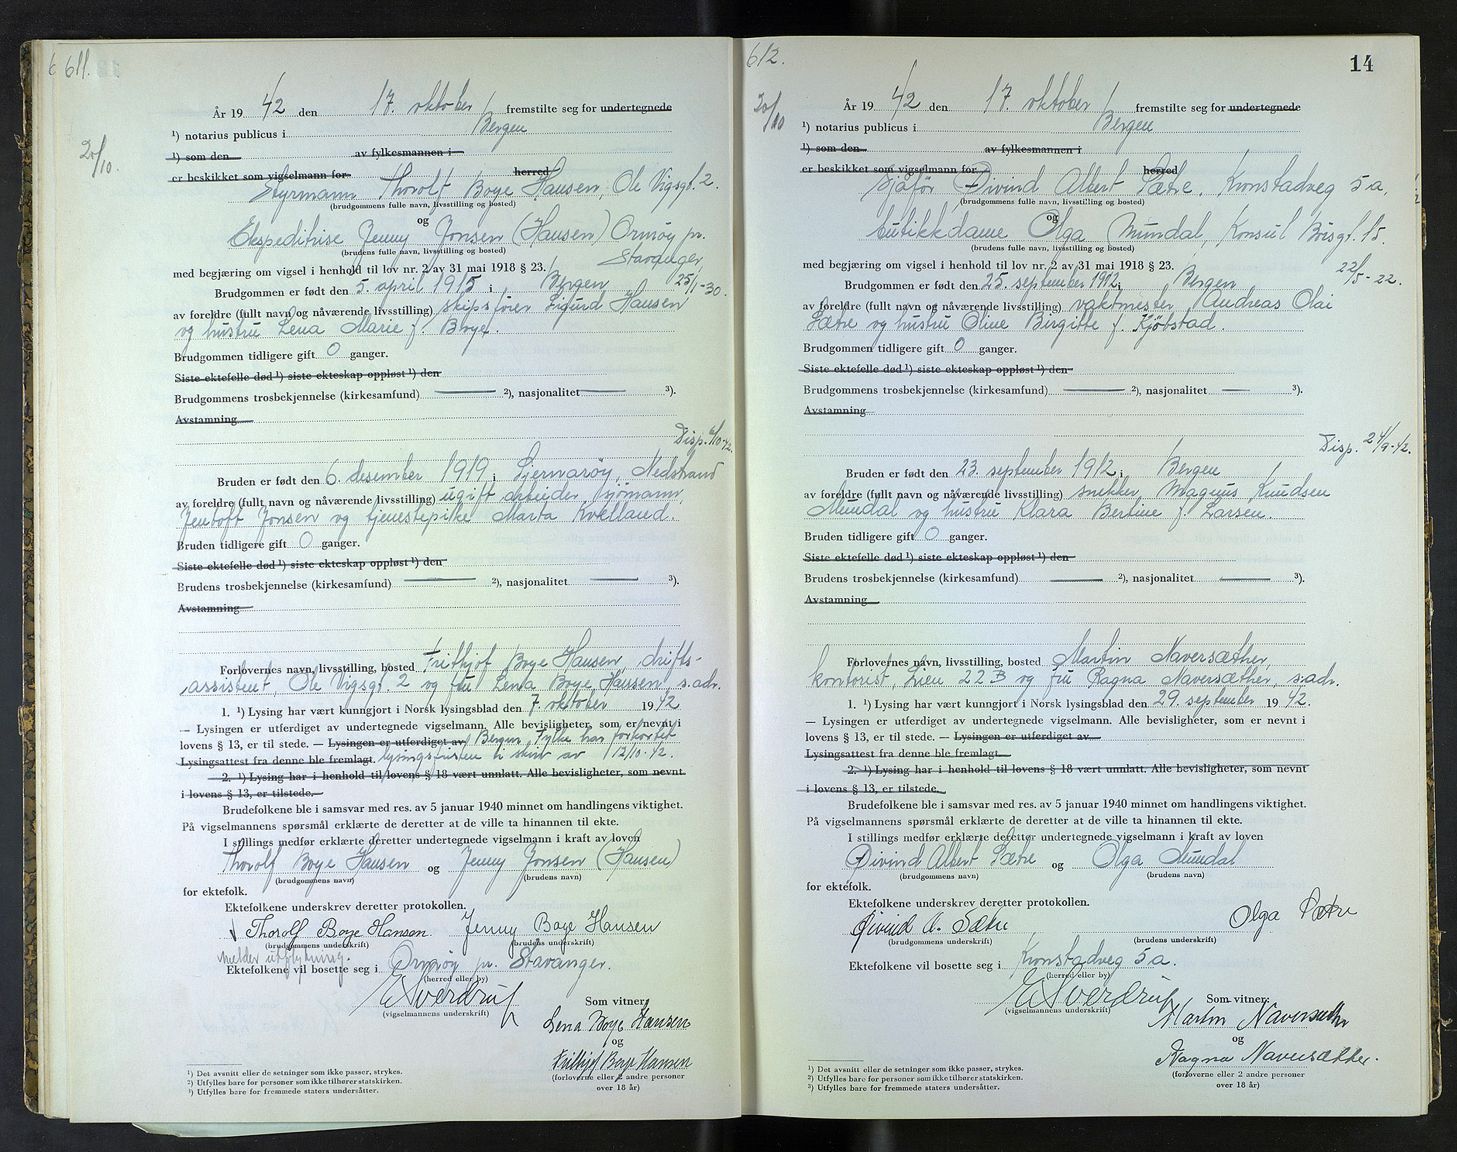 611.
20/10.
År 19 42 den 17. oktober fremstilte seg for undertegnede
¹) notarius publicus i Bergen
¹) som den av fylkesmannen i
er beskikket som vigselmann for herred
Styrmann Thorolf Boye Hansen, Ole Vigsgt. 2.
(brudgommens fulle navn, livsstilling og bosted)
og
Ekspeditrise Jenny Jonsen (Hansen) Ormøy pr.
Stavanger
(brudens fulle navn, livsstilling og bosted)
med begjæring om vigsel i henhold til lov nr. 2 av 31 mai 1918 § 23.
25/1-30.
Brudgommen er født den 5. april 1915 i Bergen
av foreldre (fullt navn og nåværende livsstilling) skipsfører Sigurd Hansen
og hustru Lena Marie f. Boye.
Brudgommen tidligere gift 0 ganger.
Siste ektefelle død ¹) siste ekteskap oppløst ¹) den
Brudgommens trosbekjennelse (kirkesamfund) ²), nasjonalitet ³).
Avstamning
Disp. 6/10-42.
Bruden er født den 6. desember 1919 i Sjernarøy, Nedstrand
av foreldre (fullt navn og nåværende livsstilling) ugift arbeider, sjömann
Jentoft Jonsen og tjenestepike Marta Kvelland.
Bruden tidligere gift 0 ganger.
Siste ektefelle død ¹) siste ekteskap oppløst ¹) den
Brudens trosbekjennelse (kirkesamfund) ²), nasjonalitet ³).
Avstamning
Forlovernes navn, livsstilling, bosted Frithjof Boye Hansen, drifts-
assistent, Ole Vigsgt. 2 og fru Lena Boye Hansen, s.adr.
1. ¹) Lysing har vært kunngjort i Norsk lysingsblad den 7. oktober 1942
— Lysingen er utferdiget av undertegnede vigselmann. Alle bevisligheter, som er nevnt i
lovens § 13, er til stede. — Lysingen er utferdiget av Bergen fylke har forkortet
Lysingsattest fra denne ble fremlagt. lysingsfristen ti skriv av 12/10-42.
2. ¹) Lysing har i henhold til lovens § 18 vært unnlatt. Alle bevisligheter, som nevnt
i lovens § 13, er tilstede.
Brudefolkene ble i samsvar med res. av 5 januar 1940 minnet om handlingens viktighet.
På vigselmannens spørsmål erklærte de deretter at de ville ta hinannen til ekte.
I stillings medfør erklærte deretter undertegnede vigselmann i kraft av loven
Thorolf Boye Hansen og Jenny Jonsen (Hansen)
(brudgommens navn) (brudens navn)
for ektefolk.
Ektefolkene underskrev deretter protokollen.
Thorolf Boye Hansen. Jenny Boye Hansen
(brudgommens underskrift) (brudens underskrift)
melder utflytning.
Ektefolkene vil bosette seg i Ormøy pr. Stavanger.
(herred eller by)
E Sverdrup
(vigselmannens underskrift)
Som vitner:
Lena Boye Hansen
og
Frithjof Boye Hansen
(forloverne eller 2 andre personer
over 18 år)
¹) Det avsnitt eller de setninger som ikke passer, strykes.
²) Utfylles bare for personer som ikke tilhører statskirken.
³) Utfylles bare for fremmede staters undersåtter.
612.
14
20/10
År 19 42 den 17. oktober fremstilte seg for undertegnede
¹) notarius publicus i Bergen
¹) som den av fylkesmannen i
er beskikket som vigselmann for herred
Sjåför Øivind Albert Sætre, Kronstadveg 5 a,
(brudgommens fulle navn, livsstilling og bosted)
og
butikkdame Olga Mundal, Konsul Börsgt. 15.
(brudens fulle navn, livsstilling og bosted)
med begjæring om vigsel i henhold til lov nr. 2 av 31 mai 1918 § 23.
22/5-22.
Brudgommen er født den 25. september 1912 i Bergen
av foreldre (fullt navn og nåværende livsstilling) vaktmester Andreas Olai
Sætre og hustru Oline Bergitte f. Kjöbstad.
Brudgommen tidligere gift 0 ganger.
Siste ektefelle død ¹) siste ekteskap oppløst ¹) den
Brudgommens trosbekjennelse (kirkesamfund) ²), nasjonalitet ³).
Avstamning
Disp. 24/9-42.
Bruden er født den 23. september 1912 i Bergen
av foreldre (fullt navn og nåværende livsstilling) snekker, Magnus Knudsen
Mundal og hustru Klara Bertine f. Larsen.
Bruden tidligere gift 0 ganger.
Siste ektefelle død ¹) siste ekteskap oppløst ¹) den
Brudens trosbekjennelse (kirkesamfund) ²), nasjonalitet ³).
Avstamning
Forlovernes navn, livsstilling, bosted Martin Naversæther,
kontorist, Lien 22 B og fru Ragna Naversæther, s.adr.
1. ¹) Lysing har vært kunngjort i Norsk lysingsblad den 29. september 1942.
— Lysingen er utferdiget av undertegnede vigselmann. Alle bevisligheter, som er nevnt i
lovens § 13, er til stede. — Lysingen er utferdiget av
Lysingsattest fra denne ble fremlagt.
2. ¹) Lysing har i henhold til lovens § 18 vært unnlatt. Alle bevisligheter, som nevnt
i lovens § 13, er tilstede.
Brudefolkene ble i samsvar med res. av 5 januar 1940 minnet om handlingens viktighet.
På vigselmannens spørsmål erklærte de deretter at de ville ta hinannen til ekte.
I stillings medfør erklærte deretter undertegnede vigselmann i kraft av loven
Øivind Albert Sætre og Olga Mundal
(brudgommens navn) (brudens navn)
for ektefolk.
Ektefolkene underskrev deretter protokollen.
Øivind A. Sætre Olga Sætre
(brudgommens underskrift) (brudens underskrift)
Ektefolkene vil bosette seg i Kronstadveg 5 a.
(herred eller by)
E Sverdrup
(vigselmannens underskrift)
Som vitner:
Martin Naversæther
og
Ragna Naversæther.
(forloverne eller 2 andre personer
over 18 år)
¹) Det avsnitt eller de setninger som ikke passer, strykes.
²) Utfylles bare for personer som ikke tilhører statskirken.
³) Utfylles bare for fremmede staters undersåtter.